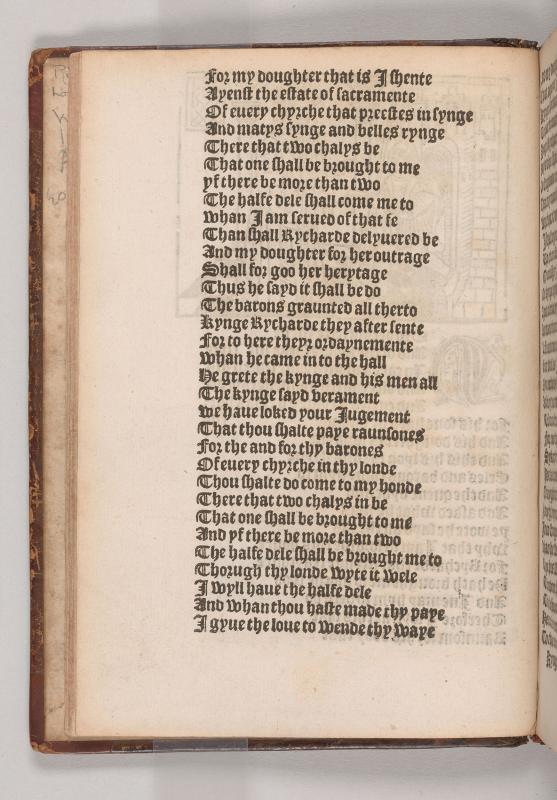 For my doughter that is I shente
Ayenst the estate of sacramente
Of euery chyrche that preestes in synge
And matys synge and belles rynge
There that two chalys be
That one shall be brought to me
yf there be more than two
The halfe dele shall come me to
whan I am serued of that fe
Than shall Rycharde delyuered be
And my doughter for her outrage
Shall for goo her herytage
Thus he sayd it shall be do
The barons graunted all therto
Kynge Rycharde they after sente
For to here theyr ordaynemente
whan he came in to the hall
He grete the kynge and his men all
The kynge sayd verament
we haue loked your Jugement
That thou shalte paye raunsones
For the and for thy barones
Of euery chyrche in thy londe
Thou shalte do come to my honde
There that two chalys in be
That one shall be brought to me
And yf there be more than two
The halfe dele shall be brought me to
Thorugh thy londe wyte it wele
I wyll haue the halfe dele
And whan thou haste made thy paye
I gyue the loue to wende thy waye